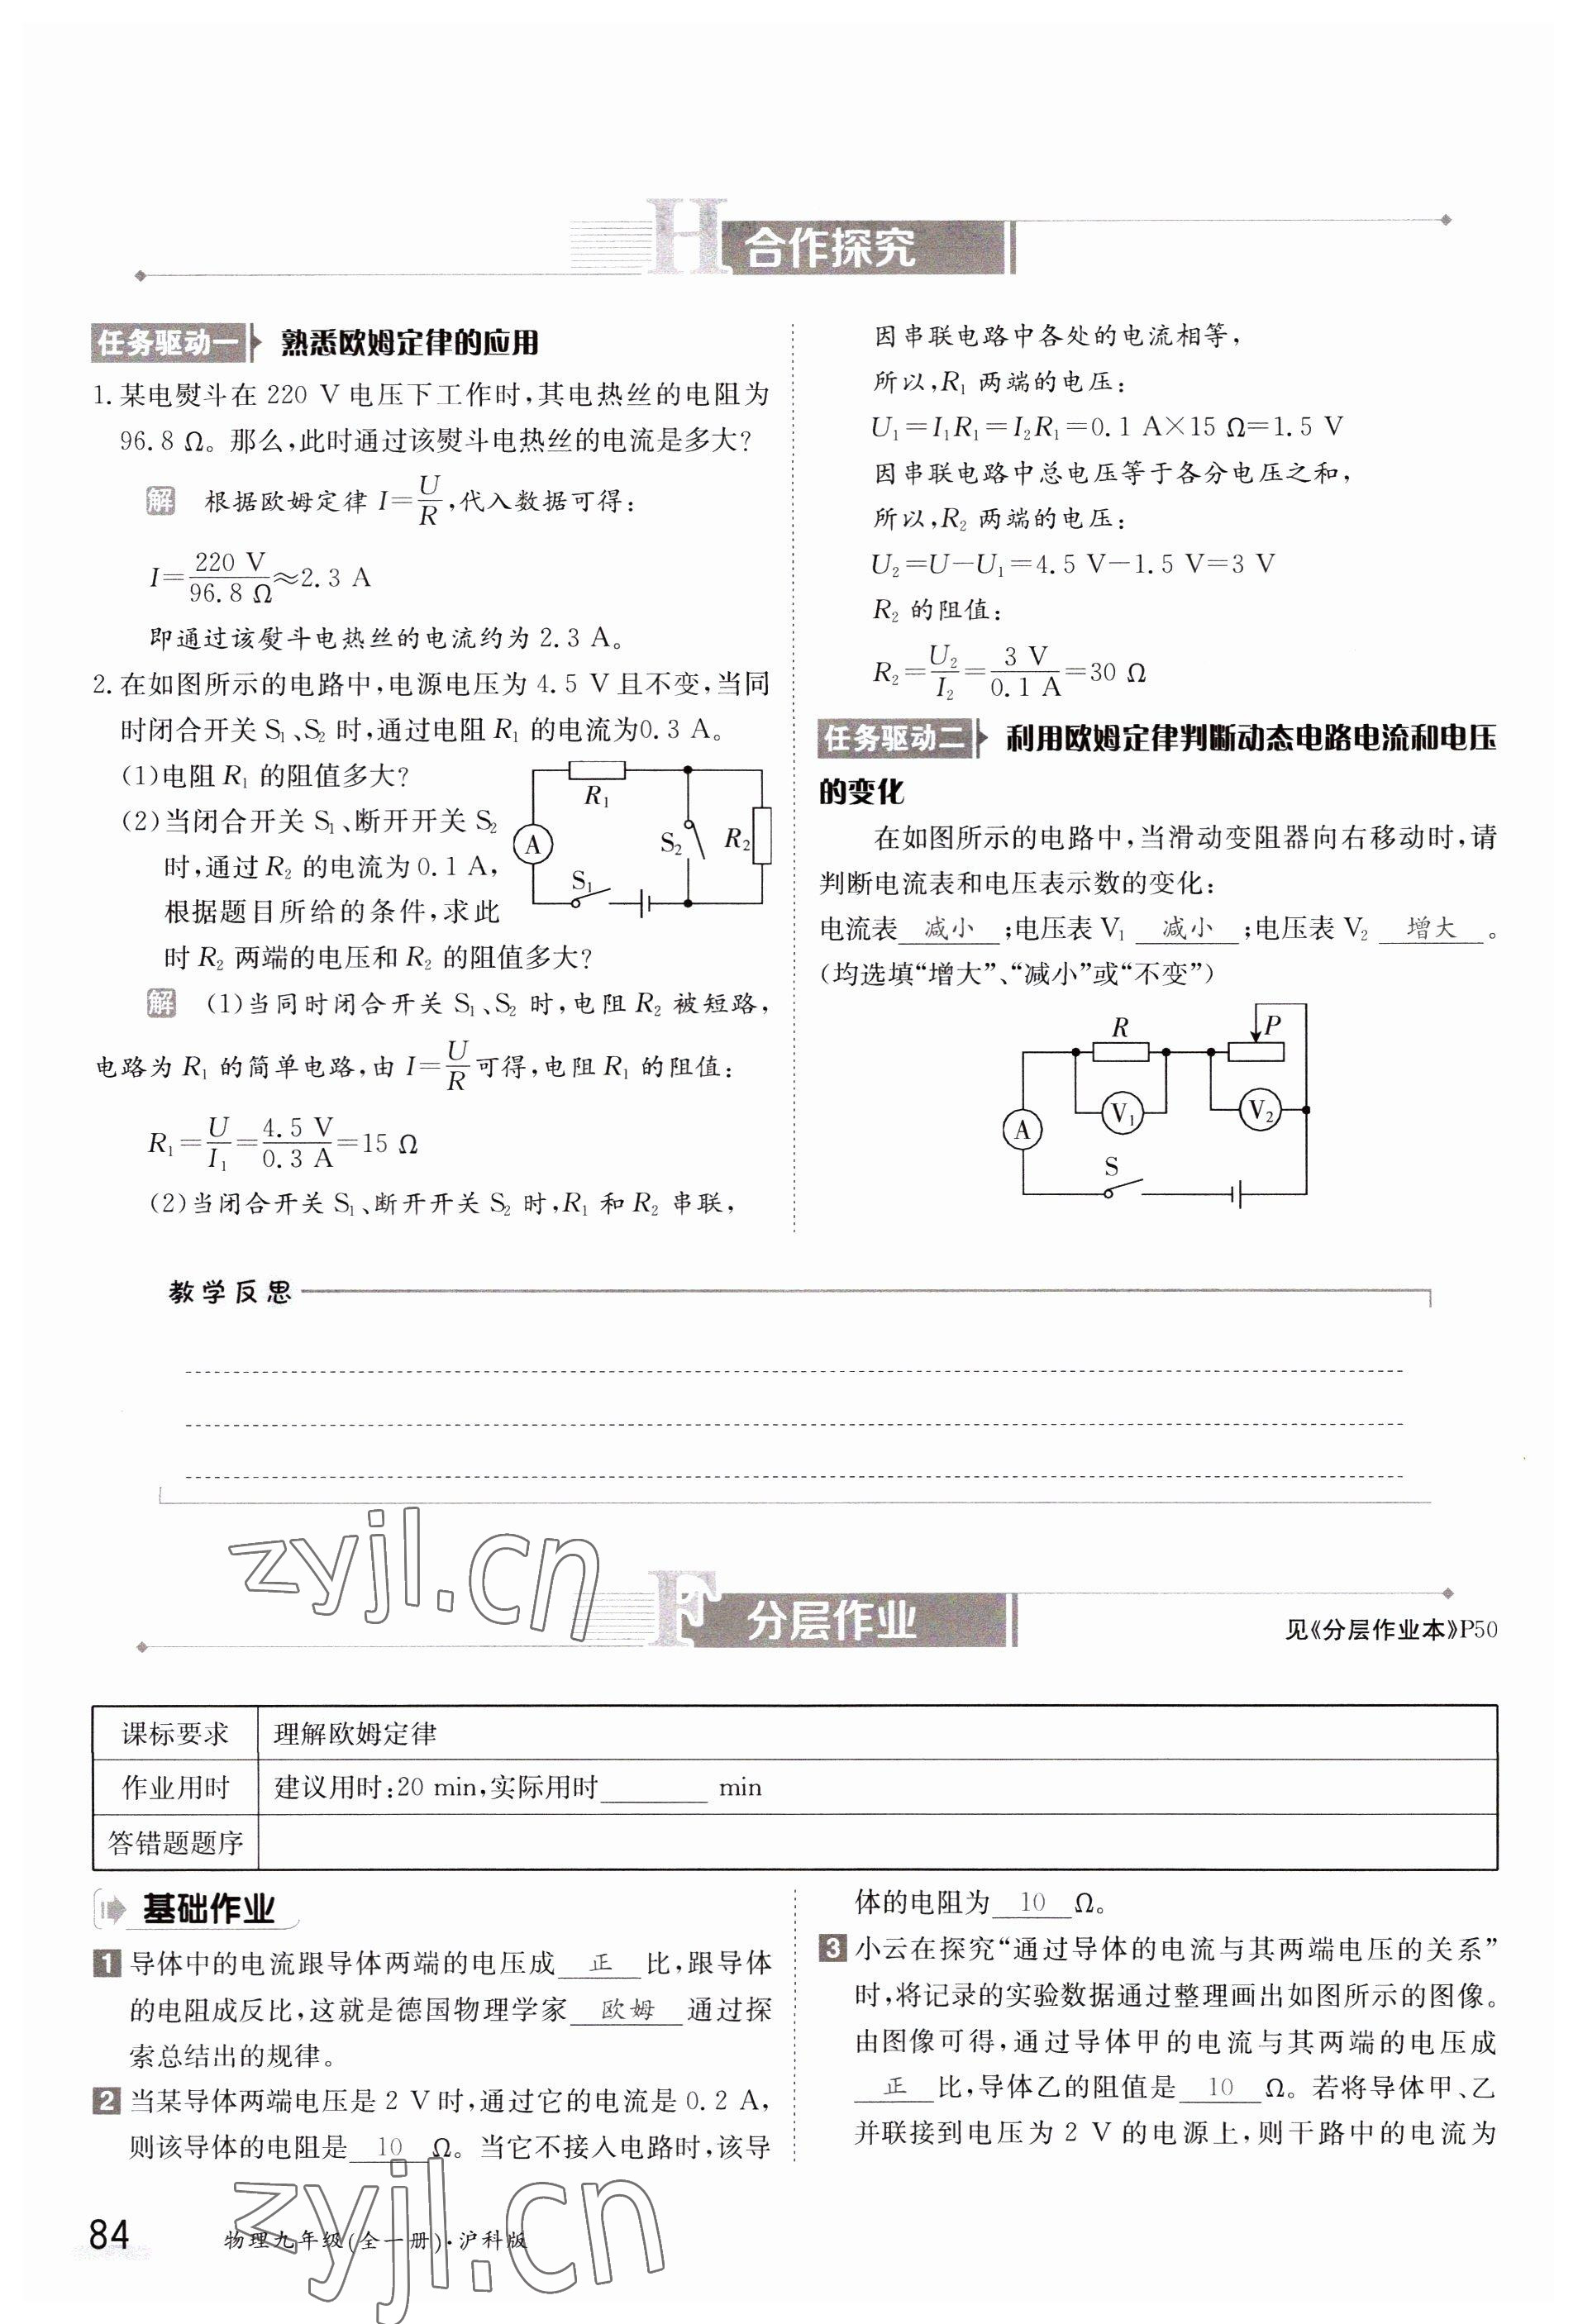 H 合作探究
任务驱动一 熟悉欧姆定律的应用
1. 某电熨斗在 220 V 电压下工作时,其电热丝的电阻为
96.8 Ω。那么,此时通过该熨斗电热丝的电流是多大?
解 根据欧姆定律 I=U/R,代入数据可得:
I=220 V/96.8 Ω≈2.3 A
即通过该熨斗电热丝的电流约为 2.3 A。
2. 在如图所示的电路中,电源电压为 4.5 V 且不变,当同
时闭合开关 S₁、S₂ 时,通过电阻 R₁ 的电流为0.3 A。
(1)电阻 R₁ 的阻值多大?
(2)当闭合开关 S₁、断开开关 S₂
时,通过 R₂ 的电流为 0.1 A,
根据题目所给的条件,求此
时 R₂ 两端的电压和 R₂ 的阻值多大?
R₁
A
S₂
R₂
S₁
解 (1)当同时闭合开关 S₁、S₂ 时,电阻 R₂ 被短路,
电路为 R₁ 的简单电路,由 I=U/R可得,电阻 R₁ 的阻值:
R₁=U/I₁=4.5 V/0.3 A=15 Ω
(2)当闭合开关 S₁、断开开关 S₂ 时,R₁ 和 R₂ 串联,
因串联电路中各处的电流相等,
所以,R₁ 两端的电压:
U₁=I₁R₁=I₂R₁=0.1 A×15 Ω=1.5 V
因串联电路中总电压等于各分电压之和,
所以,R₂ 两端的电压:
U₂=U-U₁=4.5 V-1.5 V=3 V
R₂ 的阻值:
R₂=U₂/I₂=3 V/0.1 A=30 Ω
任务驱动二 利用欧姆定律判断动态电路电流和电压
的变化
在如图所示的电路中,当滑动变阻器向右移动时,请
判断电流表和电压表示数的变化:
电流表 减小 ;电压表 V₁ 减小 ;电压表 V₂ 增大 。
(均选填“增大”、“减小”或“不变”)
R
P
V₁
V₂
A
S
教学反思
zyjl.cn
F 分层作业
见《分层作业本》P50
课标要求 理解欧姆定律
作业用时 建议用时:20 min,实际用时________ min
答错题题序
基础作业
1 导体中的电流跟导体两端的电压成 正 比,跟导体
的电阻成反比,这就是德国物理学家 欧姆 通过探
索总结出的规律。
2 当某导体两端电压是 2 V 时,通过它的电流是 0.2 A,
则该导体的电阻是 10 Ω。当它不接入电路时,该导
体的电阻为 10 Ω。
3 小云在探究“通过导体的电流与其两端电压的关系”
时,将记录的实验数据通过整理画出如图所示的图像。
由图像可得,通过导体甲的电流与其两端的电压成
正 比,导体乙的阻值是 10 Ω。若将导体甲、乙
并联接到电压为 2 V 的电源上,则干路中的电流为
84
物理九年级(全一册)·沪科版
zyjl.cn